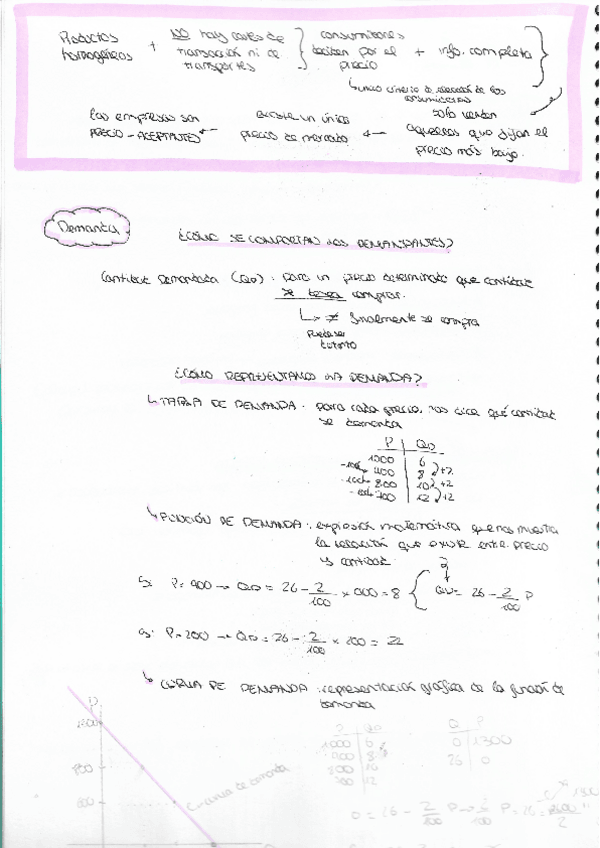 Productos homogéneos + NO hay costes de transacción ni de transportes } consumidores deciden por el precio + info. completa
↳ único criterio de elección de los consumidores
las empresas son PRECIO-ACEPTANTES ← existe un único precio de mercado ← solo venden aquellos que fijan el precio más bajo.
Demanda
¿CÓMO SE COMPORTAN LOS DEMANDANTES?
Cantidad Demandada (QD): para un precio determinado que cantidad
se desea comprar.
↳ ≠ finalmente se compra
puede ser distinto
¿CÓMO REPRESENTAMOS LA DEMANDA?
↳ TABLA DE DEMANDA: para cada precio, nos dice qué cantidad
se demanda
P | QD
1000 | 6
-100 900 | 8 +2
-100 800 | 10 +2
-100 700 | 12 +2
↳ FUNCIÓN DE DEMANDA: expresión matemática que nos muestra
la relación que existe entre precio
y cantidad
Si P=900 → QD = 26 - 2/100 × 900 = 8 { QD = 26 - 2/100 P
Si P=200 → QD = 26 - 2/100 × 200 = 22
↳ CURVA DE DEMANDA: representación gráfica de la función de
demanda
P
1300
Curva de demanda
P | QD
1000 | 6
900 | 8
800 | 10
700 | 12
Q | P
0 | 1300
26 | 0
0 = 26 - 2/100 P →